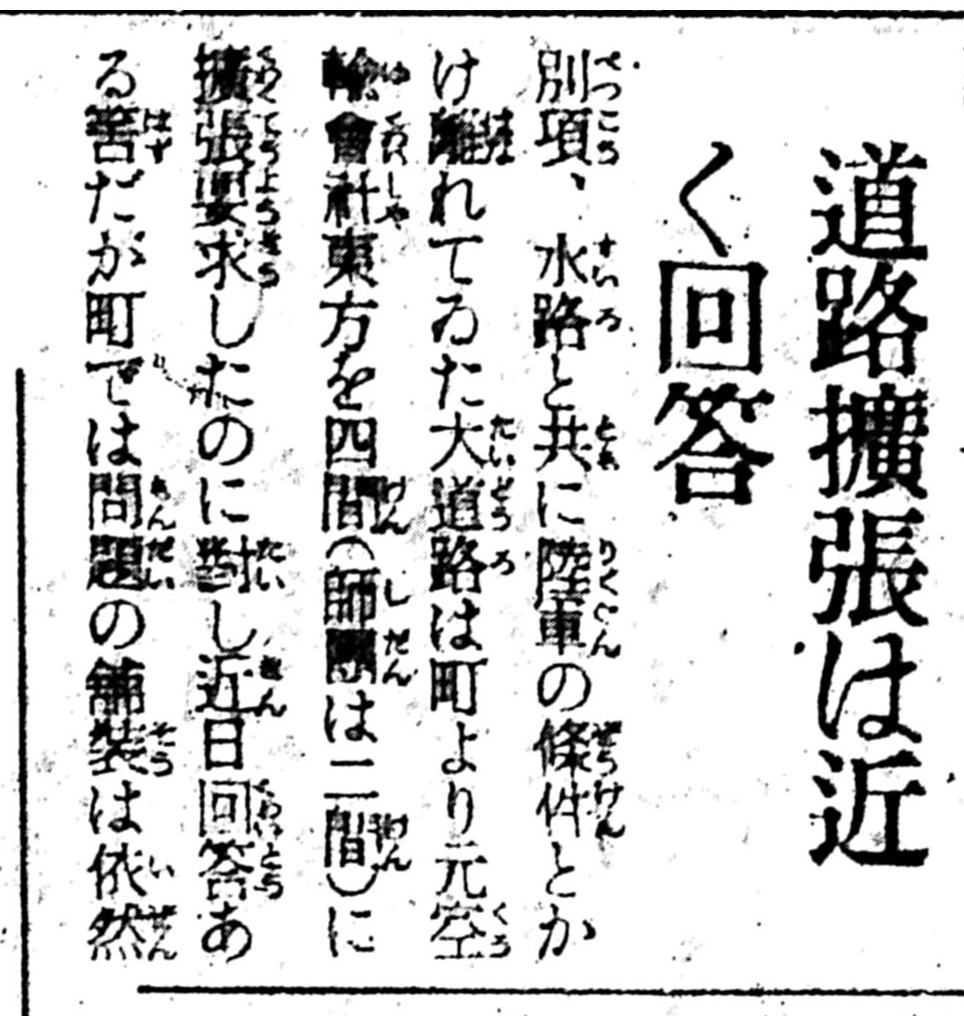 道路擴張は近
く回答
別項、水路と共に陸軍の條件とか
け離れてゐた大道路は町より元空
輸會社東方を四間(師團は二間)に
擴張要求したのに對し近日回答あ
る筈だが町では問題の舗裝は依然